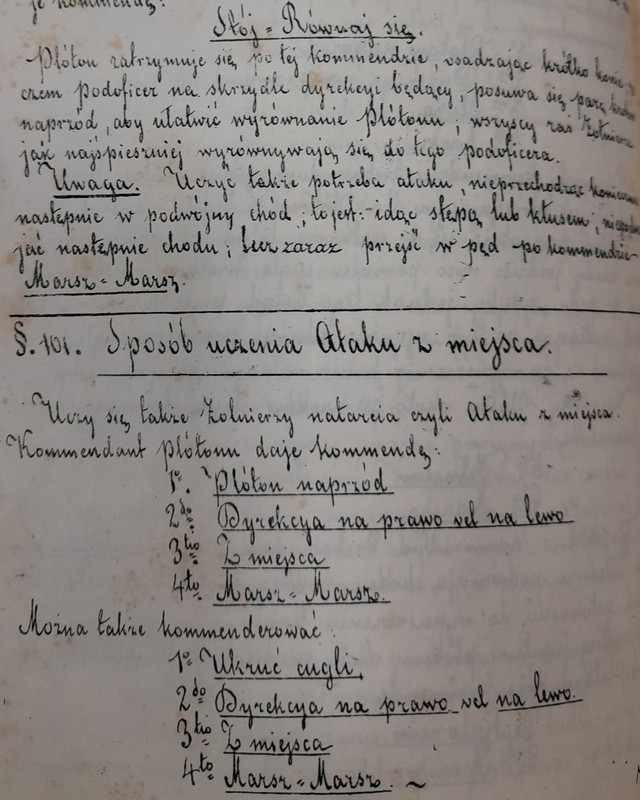 je kommendę:
Stój = Równaj się.
Plóton zatrzymuje się po tej kommendzie, osadzając krótko konie,
czem podoficer na skrzydle dyrekcyi będący, posuwa się parę
naprzód, aby ułatwić wyrównanie Plótonu; wszyscy zaś Żołnierze
jak najśpieszniej wyrównywają się do tego podoficera.
Uwaga. Uczyć także potrzeba ataku, nieprzechodząc koniecznie
następnie w podwójny chód; to jest: idąc stępą lub kłusem;
jać następnie chodu; lecz zaraz przejść w pęd po kommendzie
Marsz = Marsz.
§. 101. Sposób uczenia Ataku z miejsca.
Uczy się także Żołnierzy natarcia czyli Ataku z miejsca.
Kommendant plótonu daje kommendę:
1º. Plóton naprzód
2do Dyrekcya na prawo vel na lewo
3tio Z miejsca
4to Marsz = Marsz.
Można także kommenderować:
1º Ukruć cugli,
2do Dyrekcya na prawo vel na lewo.
3tio Z miejsca
4to Marsz = Marsz. ~